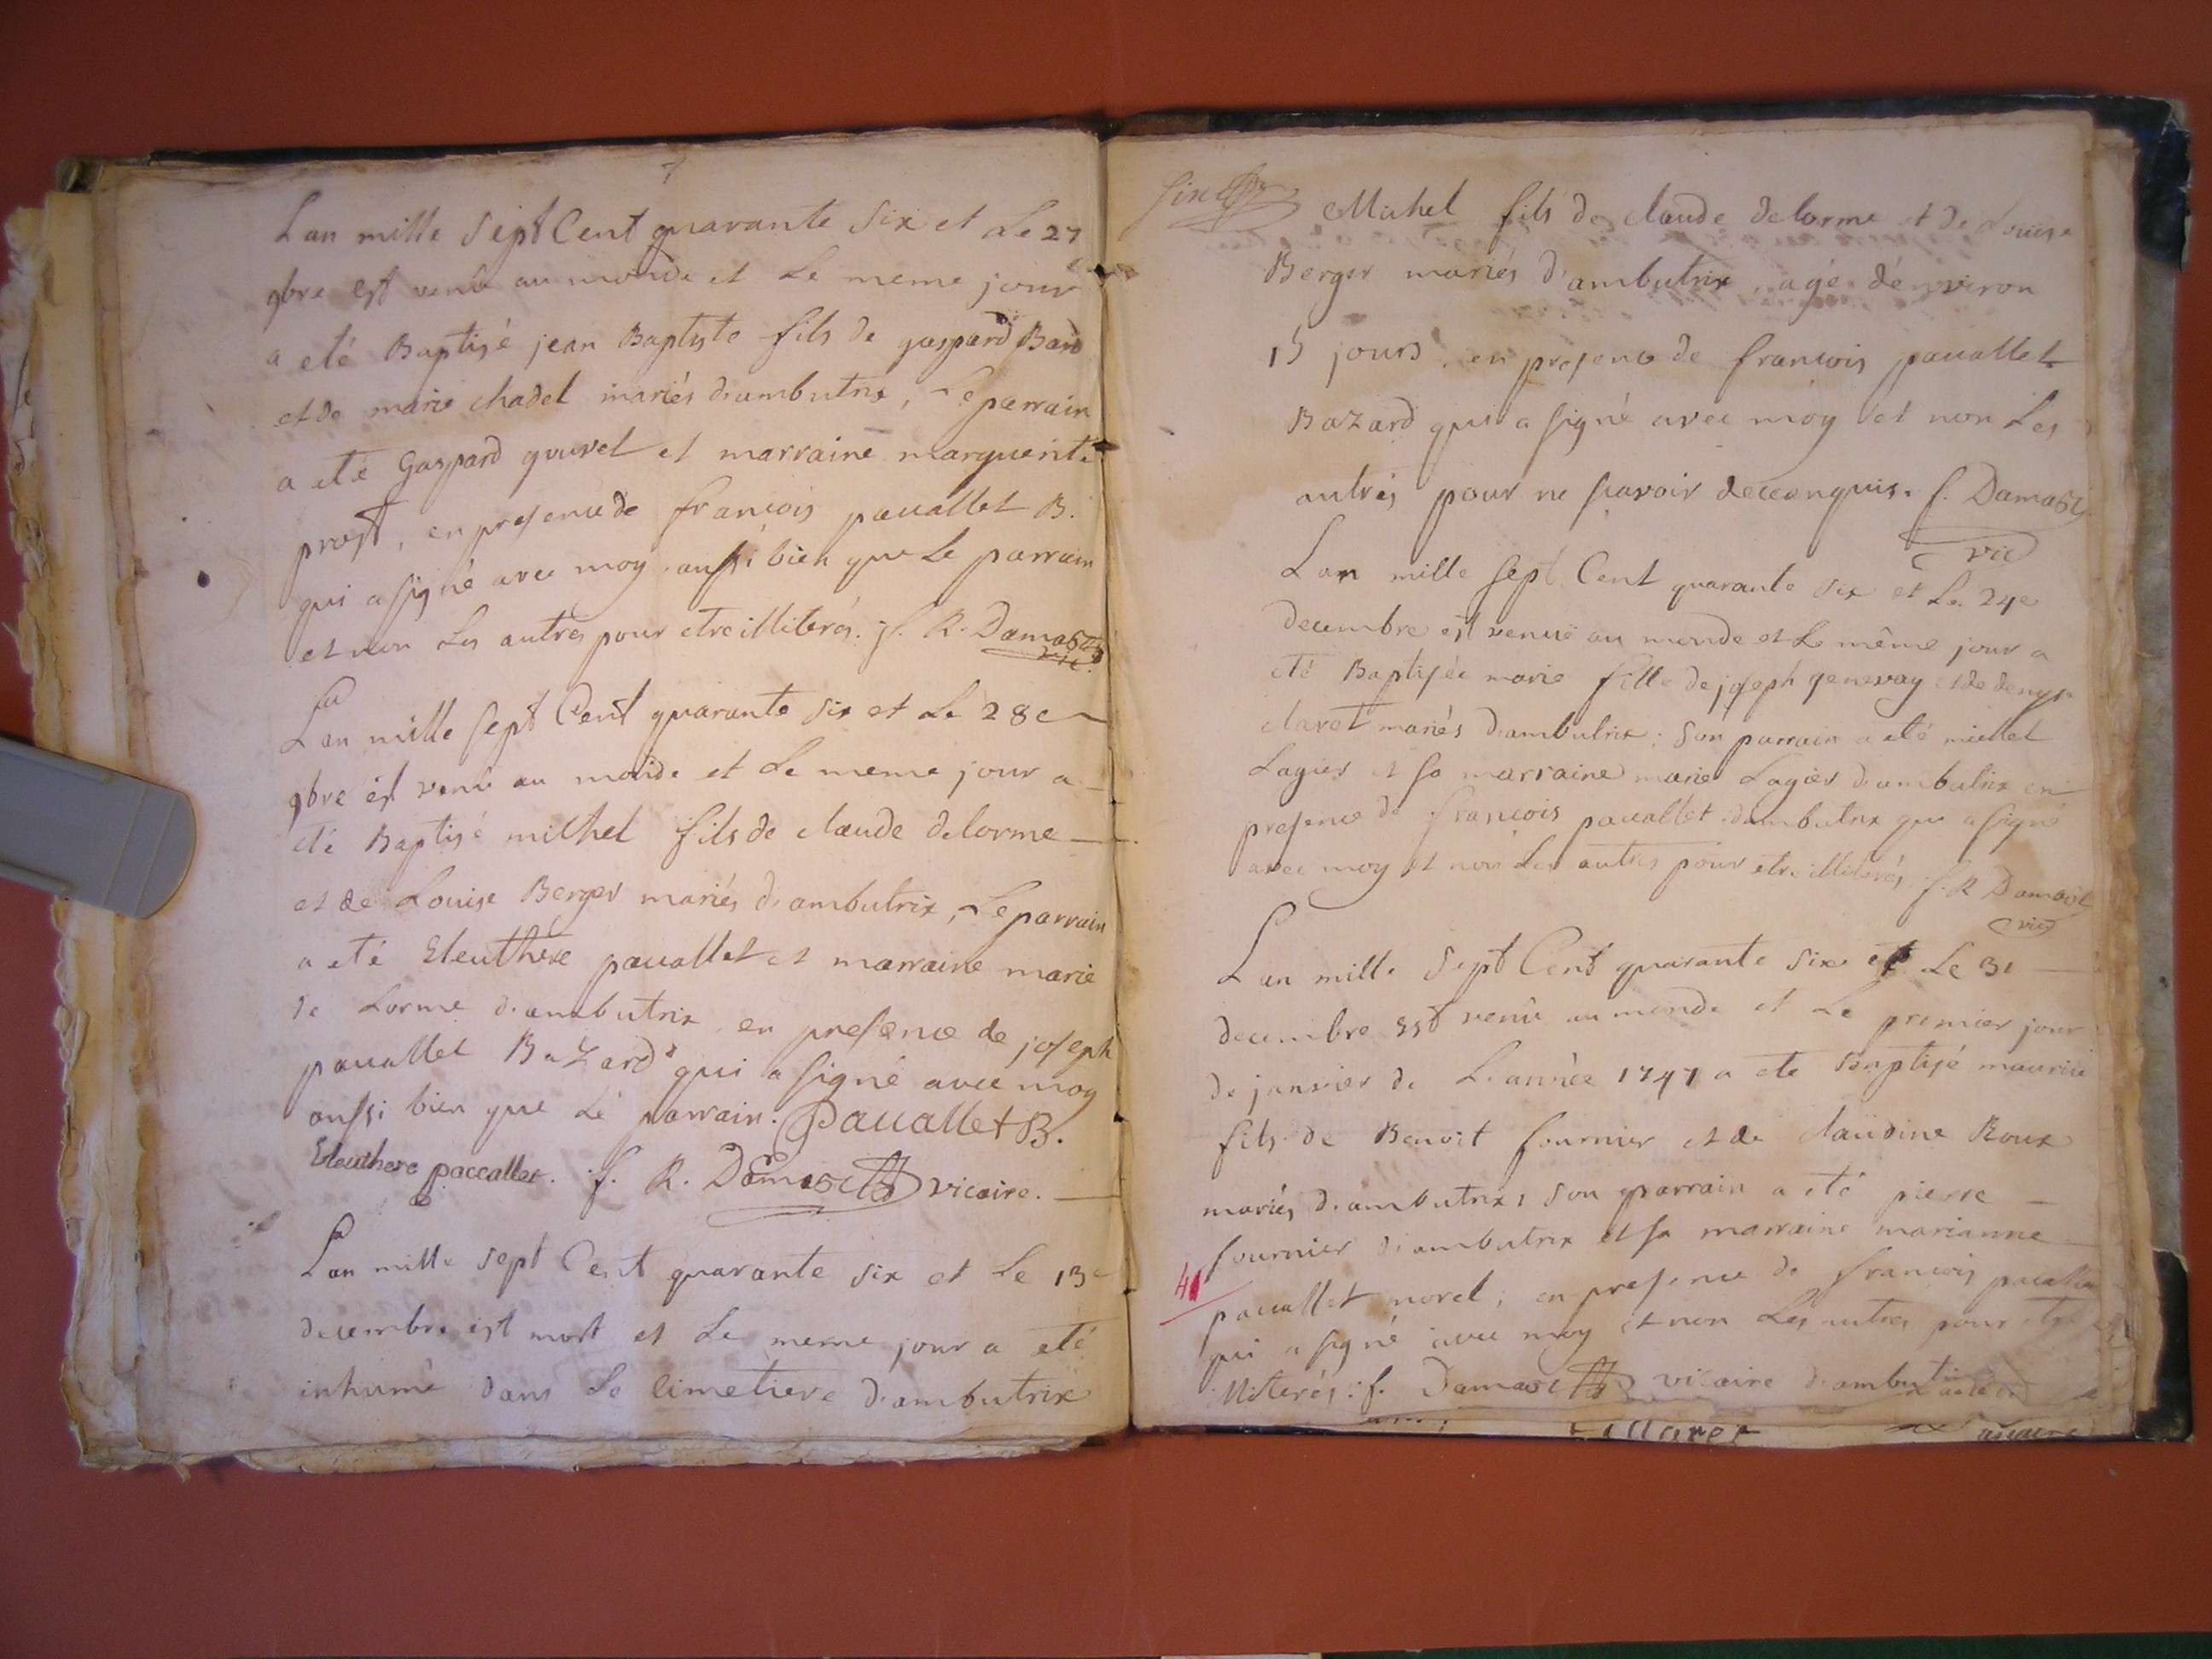 7
Lan mille Sept Cent quarante Six et Le 27
9bre est venû au monde et Le meme jour
a eté Baptisé jean Baptiste fils de gaspard Bard
et de marie chadel mariés d'ambutrix, Le parrain
a eté Gaspard et marraine marguerite
prost, en presence de francois pacallet B.
qui a signé avec moy aussi bien que Le parrain
et non Les autres pour etre illiterés. f. R. Damasit
vic.
Lan mille Sept Cent quarante Six et Le 28e
9bre est venû au monde et Le meme jour a
eté Baptisé michel fils de claude delorme
et de Louise Berger mariés d'ambutrix, Le parrain
a eté Eleuthère pacallet et marraine marie
de Lorme d'ambutrix en presence de joseph
pacallet Bazard qui a signé avec moy
aussi bien que Le parrain. Pacallet B.
Eleuthere paccallet. f. R. vicaire.
Lan mille Sept Cent quarante Six et Le 13e
decembre est mort et Le meme jour a eté
inhumé dans Le Cimetiere d'ambutrix
Six
Michel fils de claude delorme et de Louise
Berger mariés d'ambutrix, agé d'environ
15 jours, en presence de francois pacallet
Bazard qui a signé avec moy et non Les
autres pour ne scavoir de ce enquis. f. Damasit
vic
Lan mille Sept Cent quarante Six et Le 24e
decembre est venuë au monde et Le même jour a
eté Baptisée marie fille de joseph genevay et de denyse
claret mariés d'ambutrix; Son parrain a eté michel
Lagier et Sa marraine marie Lagier d'ambutrix en
presence de francois pacallet d'ambutrix qui a signé
avec moy et non Les autres pour etre illiterés f. R Damasit
vic
Lan mille Sept Cent quarante Six et Le 31
decembre Est venû au monde et Le premier jour
de janvier de L'année 1747 a ete Baptisé maurice
fils de Benoit fournier et de claudine Roux
mariés d'ambutrix, Son parrain a eté pierre
fournier d'ambutrix et Sa marraine marianne
41
pacallet morel; en presence de francois pacallet
qui a signé avec moy et non Les autres pour etre
illiterés: f. vicaire d'ambutrix